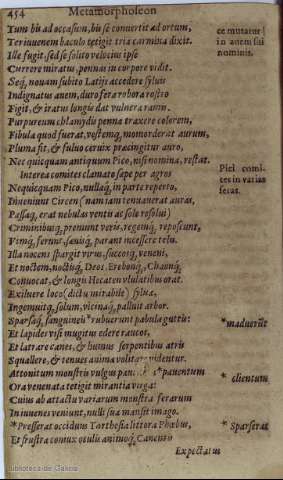 454 Metamorphoseon
Tum bis ad occasum, bis se convertit ad ortum,
Ter iuuenem baculo tetigit tria carmina dixit.
Ille fugit, sed se solito velocius ipse
Currere miratur, pennas in corpore vidit.
Seq́, nouam subito Latijs accedere syluis
Indignatus auem, duro fera robora rostro
Figit, & iratus longis dat vulnera ramis.
Purpureum chlamydis penna traxere colorem,
Fibula quod fuerat, vestemq́, momorderat aurum,
Pluma fit, & fuluo ceruix præcingitur auro,
Nec quicquam antiquum Pico, nisi nomina, restat.
Interea comites clamato sæpe per agros
Nequicquam Pico, nullaq́, in parte reperto,
Inueniunt Circen (nam iam tenuauerat auras,
Passaq́, erat nebulas ventis ac sole resolui)
Criminibusq́, premunt veris, regemq́, reposcunt,
Vimq́, ferunt, sæuisq́, parant incessere telis.
Illa nocens spargit virus, succosq́, veneni,
Et noctem, noctisq́, Deos, Ereboq́, Chaoq́,
Conuocat, & longis Hecaten vlulatibus orat.
Exiluere loco (dictu mirabile) sylua,
Ingemuitq́, solum, vicinaq́, palluit arbor.
Sparsaq́, sanguineis *rubuerunt pabula guttis:
Et lapides visi mugitus edere raucos,
Et latrare canes, & humus serpentibus atris
Squallere, & tenues anima volitare videntur.
Attonitum monstris vulgus pauet *pauentum
Ora venenata tetigit mirantia virga:
Cuius ab attactu variarum monstra ferarum
In iuuenes veniunt, nulli sua mansit imago.
*Presserat occiduus Tarthesia littora Phœbus,
Et frustra coniux oculis animoq́, Canentis
Expectatus
ce mutatur
in auem sui
nominis.
Pici comi-
tes in varias
feras.
*maduerūt
*clientum
*Sparserat
Biblioteca de Galicia